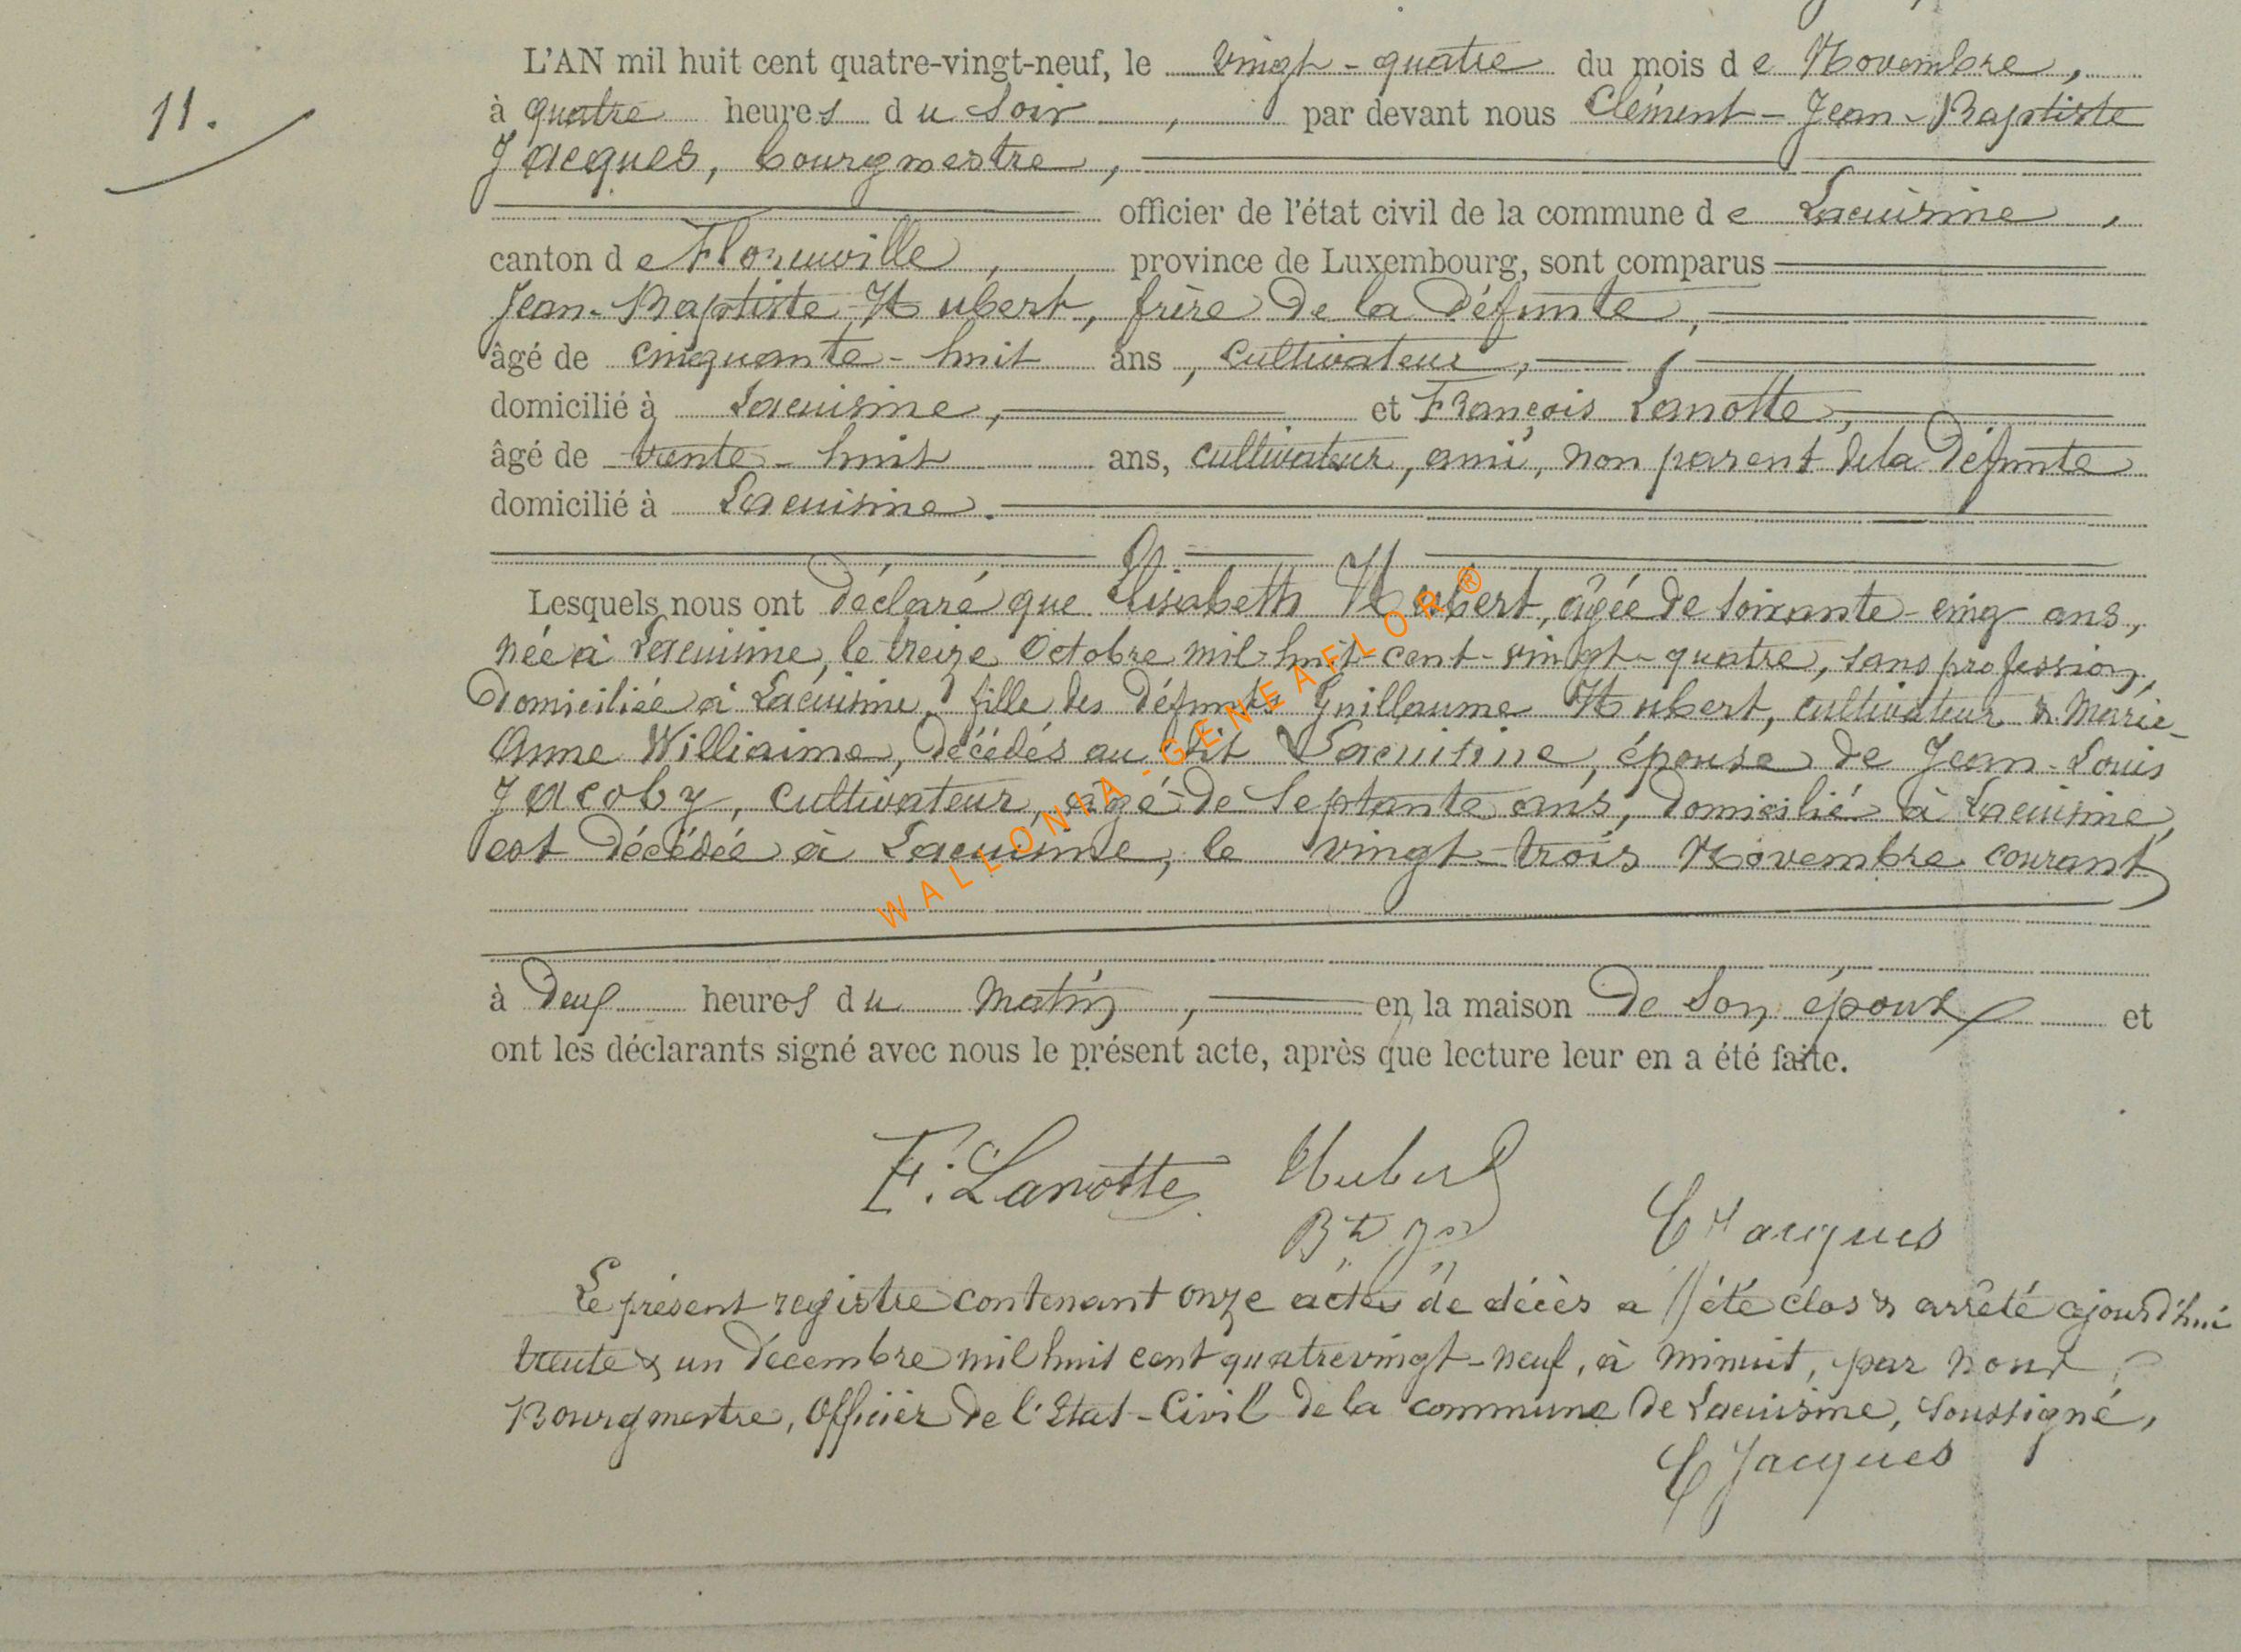 L'AN mil huit cent quatre-vingt-neuf, le vingt-quatre du mois de Novembre,
11.
à quatre heures du soir, par devant nous Clément-Jean-Baptiste
Jacques, bourgmestre,
officier de l'état civil de la commune de Lacuisine,
canton de Florenville, province de Luxembourg, sont comparus
Jean-Baptiste Hubert, frère de la défunte,
âgé de cinquante-huit ans, cultivateur,
domicilié à Lacuisine, et François Lanotte,
âgé de trente-huit ans, cultivateur, ami, non parent de la défunte
domicilié à Lacuisine.
Lesquels nous ont déclaré que Elisabeth Hubert, âgée de soixante-cinq ans,
née à Lacuisine, le treize Octobre mil-huit-cent-vingt-quatre, sans profession,
domiciliée à Lacuisine, fille des défunts Guillaume Hubert, cultivateur & Marie-
Anne Williaime, décédés au dit Lacuisine, épouse de Jean-Louis
Jacoby, cultivateur, âgé de septante ans, domicilié à Lacuisine,
est décédée à Lacuisine, le vingt-trois Novembre courant
WALLONIA-GENEAFLOR®
à deux heures du matin, en la maison de son époux et
ont les déclarants signé avec nous le présent acte, après que lecture leur en a été faite.
F. Lanotte Hubert
CJacques
Le présent registre contenant onze actes de décès a été clos & arrêté ajourd'hui
trente & un décembre mil huit cent quatrevingt-neuf, à minuit, par nous
Bourgmestre, Officier de l'Etat-Civil de la commune de Lacuisine, soussigné,
CJacques